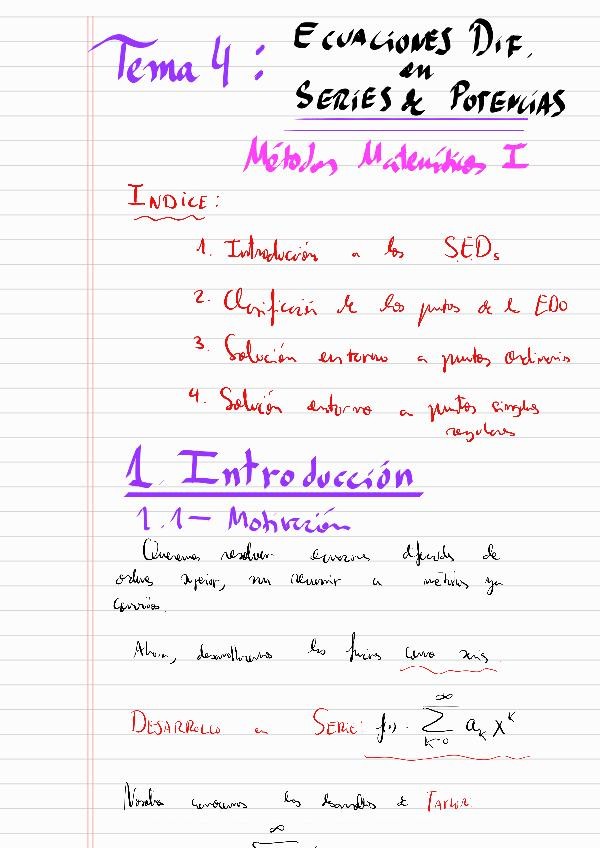 Tema 4: ECUACIONES DIF.
en
SERIES de POTENCIAS
Métodos Matemáticos I
INDICE:
1. Introducción a los SEDs
2. Clasificación de los puntos de la EDO
3. Solución entorno a puntos ordinarios
4. Solución entorno a puntos singulares
regulares
1. Introducción
1.1- Motivación
Queremos resolver ecuaciones de
orden superior, sin recurrir a métodos ya
conocidos.
Ahora, desarrollaremos las funciones como series
DESARROLLO en SERIE: f(x) = ∑ k=0 ∞ aₖ xᵏ
Nosotros conocemos los desarrollos de TAYLOR
∞